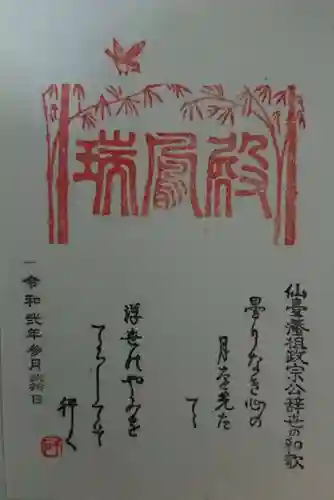 瑞鳳殿
仙臺藩祖政宗公辞世の和歌
曇りなき心の
月を先だ
て
浮世のやみを
てらしてそ
行く
令和弐年参月
日